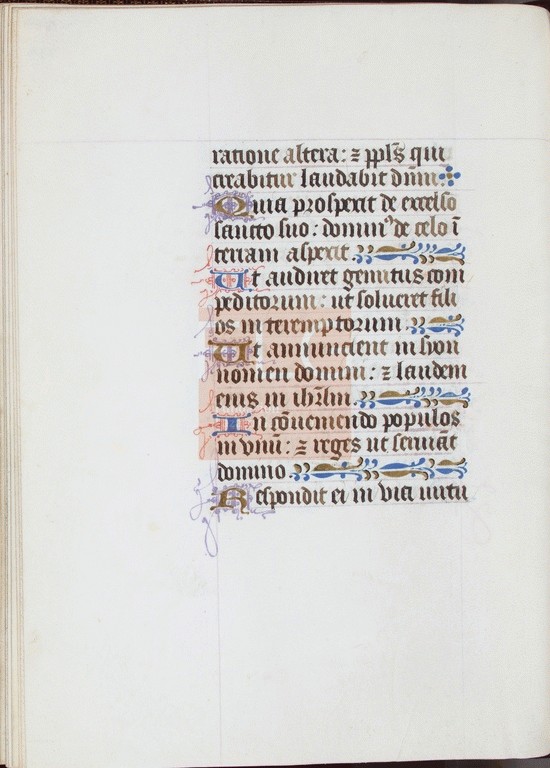 ratione altera: ⁊ ppl̄s qui
creabitur laudabit dn̄m.
Quia prospexit de excelso
sancto suo: domin⁹ de celo ī
terram aspexit.
Ut audiret gemitus com
peditorum: ut solueret fili
os interemptorum.
Ut annuncient in syon
nomen domini: ⁊ laudem
eius in ihr̄lm.
In cōueniendo populos
in vnū: ⁊ reges ut seruiāt
domino.
Respondit ei in via uirtu